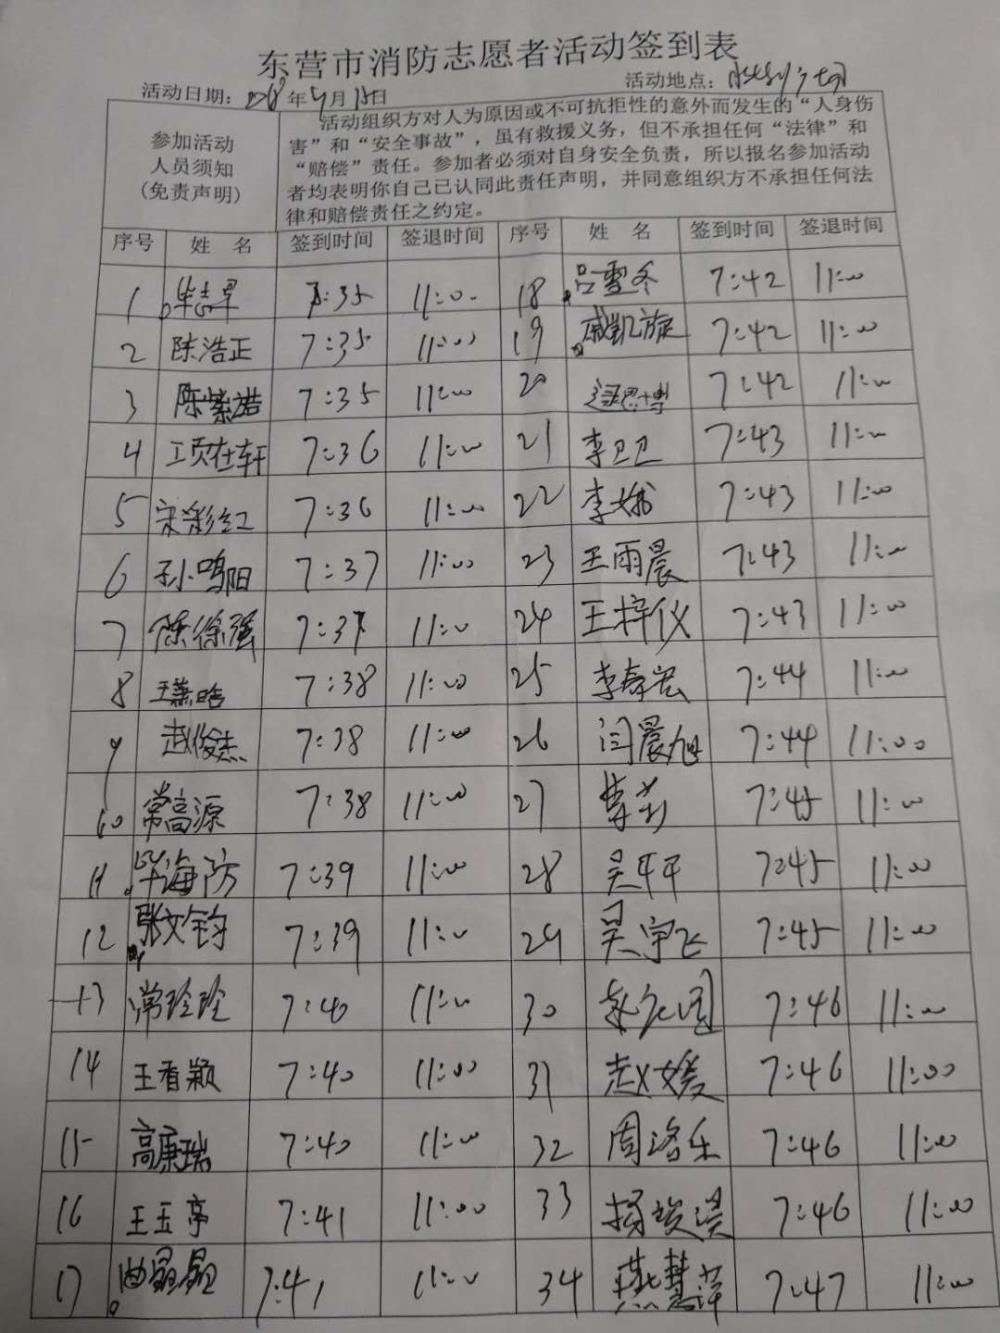 东营市消防志愿者活动签到表
活动日期：2018年5月15日 活动地点：
参加活动
人员须知
(免责声明)
活动组织方对人为原因或不可抗拒性的意外而发生的“人身伤
害”和“安全事故”，虽有救援义务，但不承担任何“法律”和
“赔偿”责任。参加者必须对自身安全负责，所以报名参加活动
者均表明你自己已认同此责任声明，并同意组织方不承担任何法
律和赔偿责任之约定。
序号 姓 名 签到时间 签退时间 序号 姓 名 签到时间 签退时间
1 7:35 11:00 18 吕雪冬 7:42 11:00
2 陈浩正 7:35 11:00 19 戚凯旋 7:42 11:00
3 陈紫皓 7:35 11:00 20 7:42 11:00
4 7:36 11:00 21 李卫卫 7:43 11:00
5 宋彩红 7:36 11:00 22 李娥 7:43 11:00
6 孙鸣阳 7:37 11:00 23 王雨晨 7:43 11:00
7 陈徐强 7:37 11:00 24 王梓仪 7:43 11:00
8 7:38 11:00 25 李春宏 7:44 11:00
9 赵俊杰 7:38 11:00 26 闫晨旭 7:44 11:00
10 常高源 7:38 11:00 27 7:45 11:00
11 毕海防 7:39 11:00 28 7:45 11:00
12 张文钧 7:39 11:00 29 吴宇飞 7:45 11:00
13 常玲玲 7:40 11:00 30 7:46 11:00
14 王看颖 7:40 11:00 31 赵媛 7:46 11:00
15 高康瑞 7:40 11:00 32 周洛乐 7:46 11:00
16 王玉亭 7:41 11:00 33 7:46 11:00
17 曲晶晶 7:41 11:00 34 燕慧萍 7:47 11:00